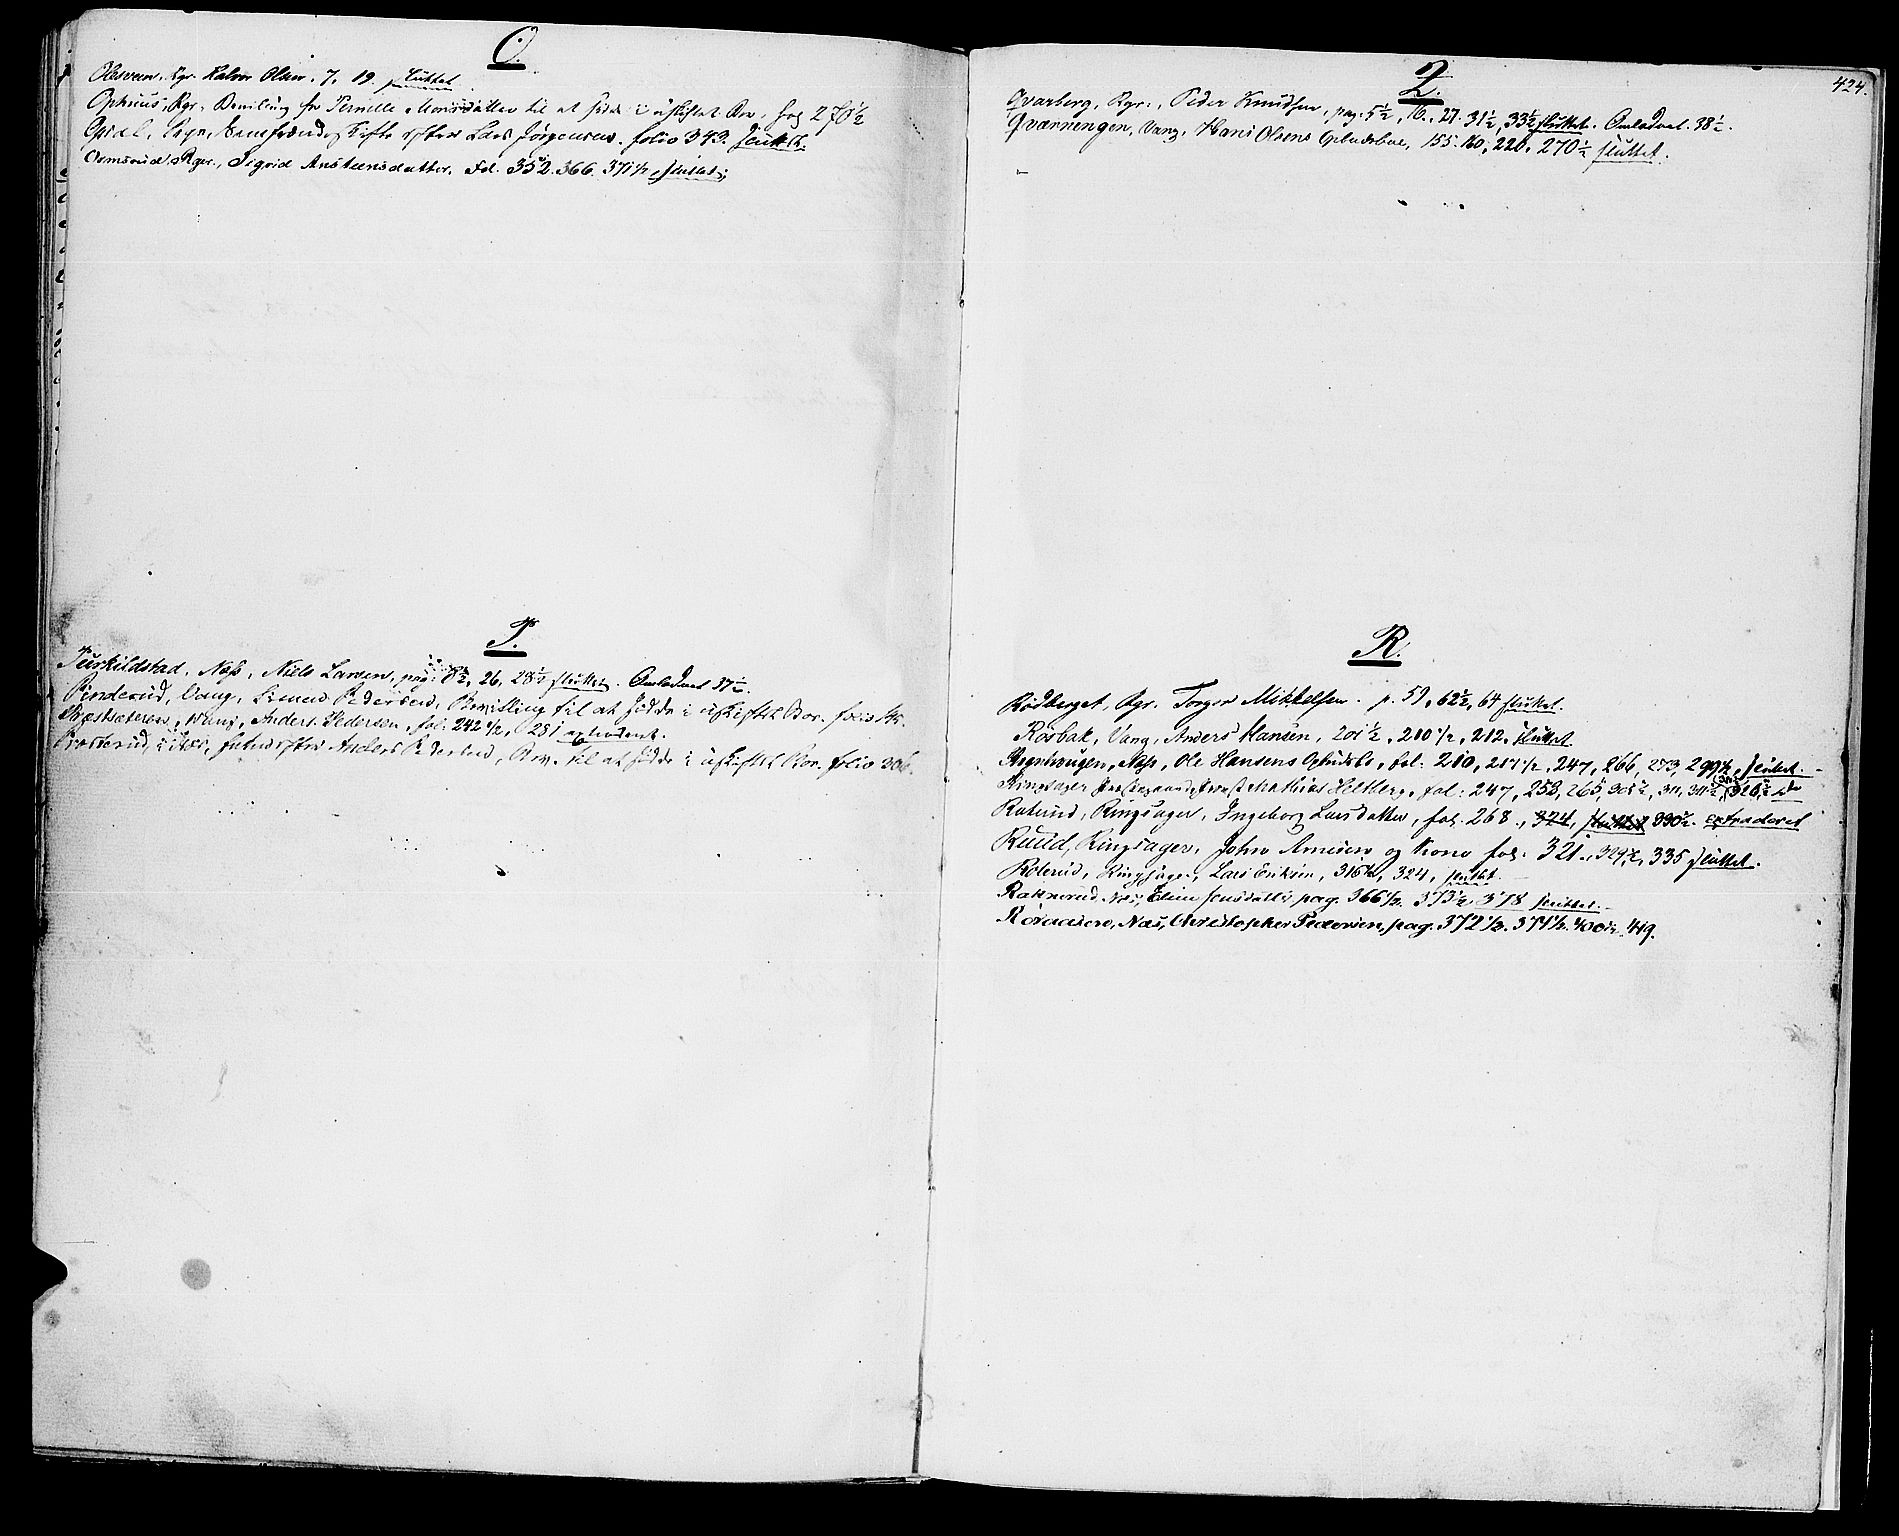 O.
Olsveen, Rgr. Halvor Olsen. 7. 19 sluttet
Ophuus, Rgr. Bevilling for Pernille Monsdatter til at sidde i uskiftet Bo, fog 278½
Opsal, Rgr, Skifte efter Lars Jørgensen. folio 343. sluttet.
Ormsrud, Rgr., Sigrid Anstensdatter. Fol. 352. 366. 371½ sluttet;
P.
Purkildstad, Næs, Niels Larsen, pag: 8½, 26, 28½ sluttet. Omladnet 37½.
Pinderud, Vang, Simen Pedersen, Bevilling til at sidde i uskiftet Bo. folio
Præstsæteren, Vang, Anders Pedersen, fol: 242½, 281 extraderet.
Præsterud, Anders Pedersen, Bev. til at sidde i uskiftet Bo. folio 306.
424.
Q.
Qvarberg, Rgr., Peder Knudsen, pag. 5½, 16, 27. 31½, 33½ sluttet. Omladnet. 38½.
Qværnengen, Vang, Hans Olsens Opbudsboe, 155. 160, 220, 270½ sluttet.
R.
Rødberget, Rgr. Torger Mikkelsen. p. 51, 62½, 64 sluttet.
Rosbak, Vang, Anders Hansen, 201½, 210½, 212. sluttet
Rognhougen, Næs, Ole Hansens Opbudsbo, fol: 210, 217½, 247, 266, 273, 299½, sluttet.
Ringsager Mathias Heltberg, fol: 247, 253, 265, 305½, 311, 311½, 326½,
Raterud, Ringsager, Ingeborg Larsdatter, fol. 268., 324, sluttet 330½. extraderet
Ruud, Ringsager, John Arnesen og Kone fol: 321., 329½, 335 sluttet.
Roterud, Ringsager, Lars Eriksen, 316½, 324, sluttet.
Raknerud, Næs, Eline Jensdatter pag. 366½. 373½, 378 sluttet.
Rosaasen, Næs, Christopher Pedersen, pag. 372½. 371½. 400½. 419.